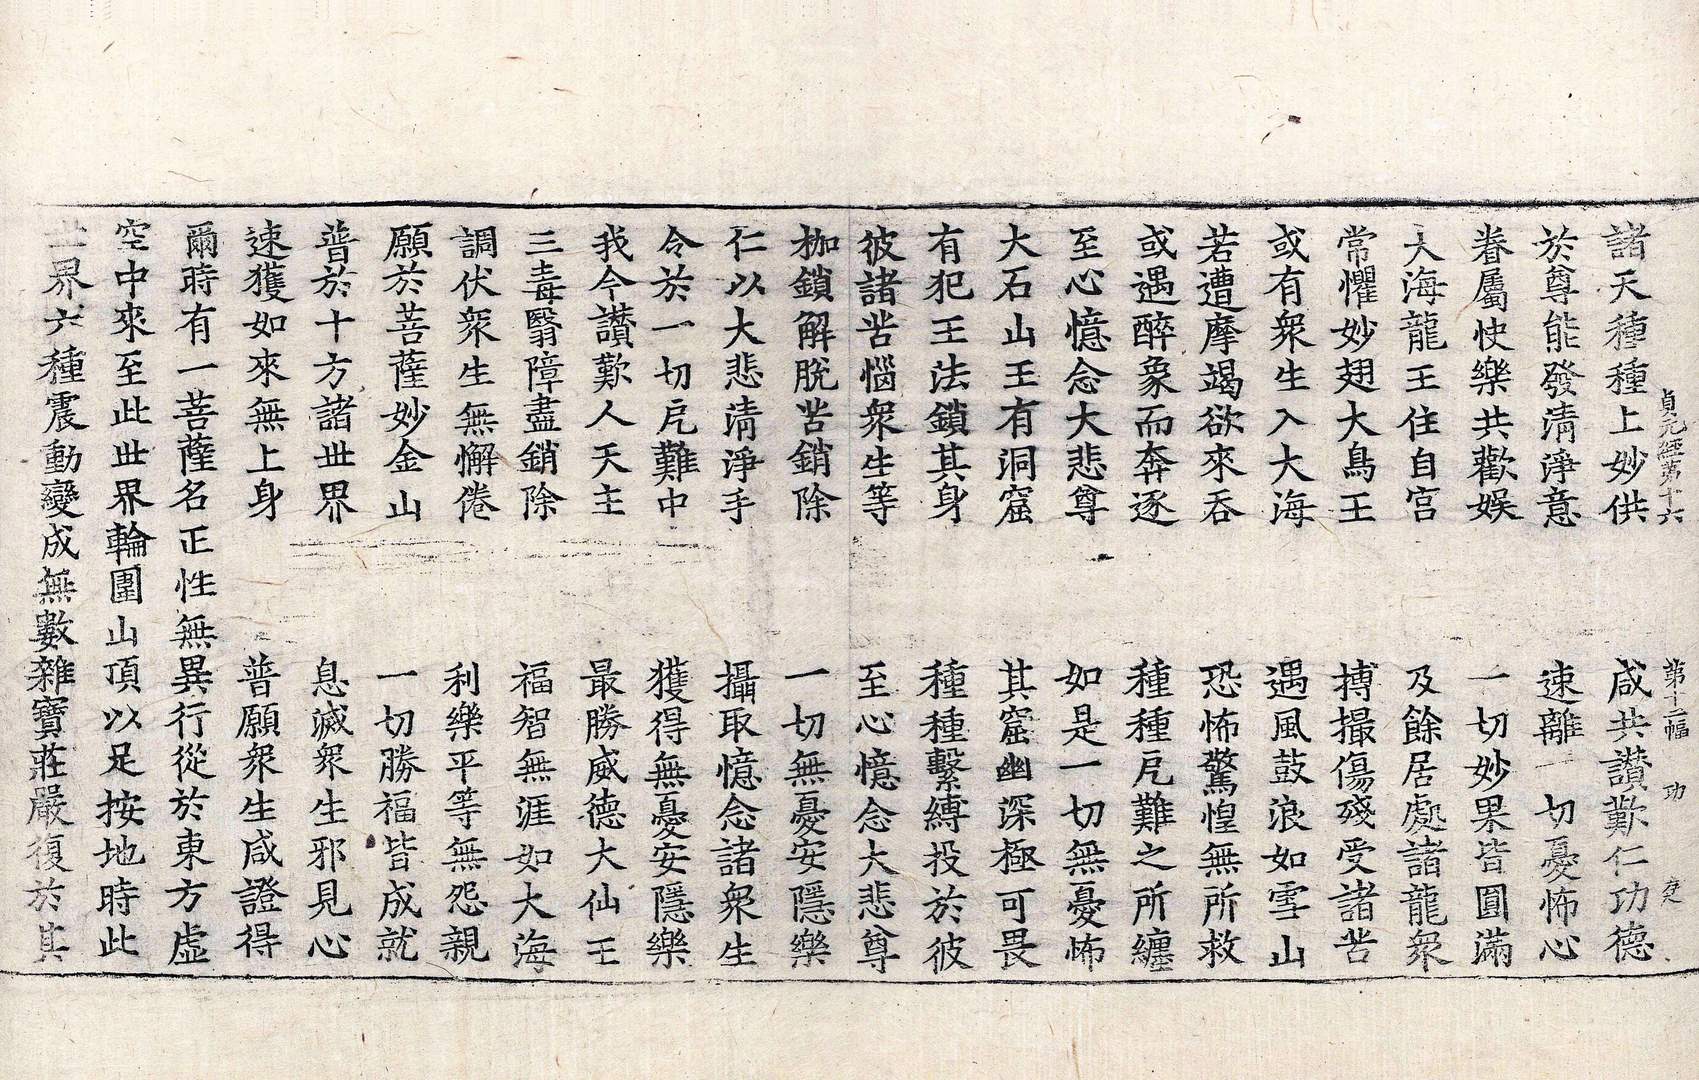 諸天種種上妙供　咸共讃歎仁功德
貞元經第十六　第十二幅　功
於尊能發清淨意　速離一切憂怖心
眷屬快樂共歡娛　一切妙果皆圓滿
大海龍王住自宮　及餘居處諸龍衆
常懼妙翅大鳥王　搏撮傷殘受諸苦
或有衆生入大海　遇風鼓浪如雪山
若遭摩竭欲來吞　恐怖驚惶無所救
或遇醉象而奔逐　種種戹難之所纏
至心憶念大悲尊　如是一切無憂怖
大石山王有洞窟　其窟幽深極可畏
有犯王法鎖其身　種種繫縛投於彼
彼諸苦惱衆生等　至心憶念大悲尊
枷鎖解脫苦銷除　一切無憂安隱樂
仁以大悲清淨手　攝取憶念諸衆生
令於一切戹難中　獲得無憂安隱樂
我今讃歎人天主　最勝威德大仙王
三毒翳障盡銷除　福智無涯如大海
調伏衆生無懈倦　利樂平等無怨親
願於菩薩妙金山　一切勝福皆成就
普於十方諸世界　息滅衆生邪見心
速獲如來無上身　普願衆生咸證得
爾時有一菩薩名正性無異行從於東方虛
空中來至此世界輪圍山頂以足按地時此
世界六種震動變成無數雜寶莊嚴復於其